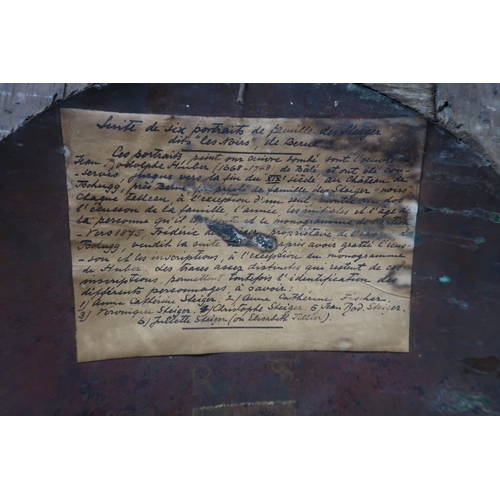 Suite de six portraits de famille des Steiger
dits "les Noirs", de Berne
Ces portraits, peint sur cuivre bombé sont l'oeuvre de
Jean Rodolphe Huber (1668-1748 de Bâle et ont été con-
servés jusque vers la fin du XIXe siècle au château de
Tschugg, près Berne propriété de famille des Steiger "noirs"
Chaque tableau, à l'exception d'un seul, montre au dos
l'écusson de la famille l'année les initiales et l'âge de
la personne qu'il et le monogramme de
Vers 1875, Frédéric de propriétaire de
Tschugg, vendit la suite après avoir gratté l'écus-
son et les inscriptions, à l'exception du monogramme
de Huber, des traces assez distinctes qui restent de ces
inscriptions permettent toutefois l'identification des
différents personnages, à savoir:
1) Anne Catherine Steiger. 2) Anne Catherine Fischer.
3) Véronique Steiger. 4) Christophe Steiger 5 Jean Rod. Steiger.
6) Juliette Steiger (ou Elisabeth Tillier).